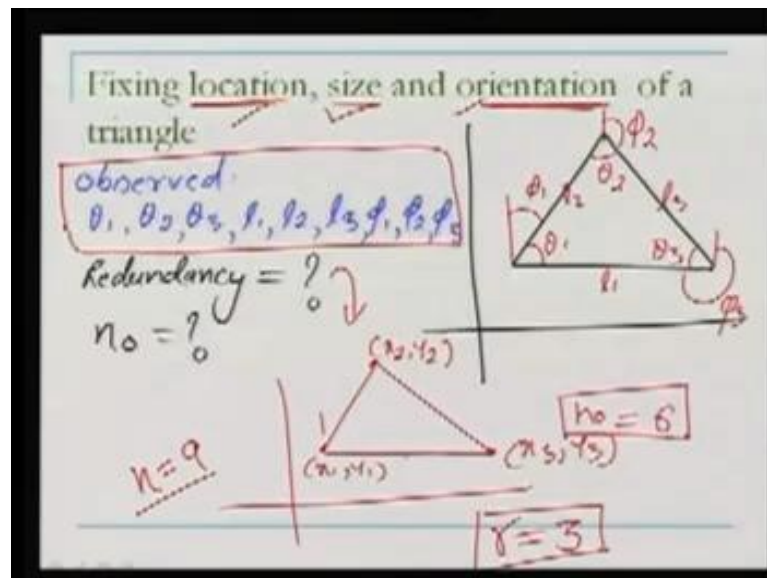 Fixing location, size and orientation of a
triangle
observed:
θ₁, θ₂, θ₃, l₁, l₂, l₃, φ₁, φ₂, φ₃
Redundancy = ?
n₀ = ?
φ₂
φ₁
l₂
θ₂
l₃
θ₁
θ₃
l₁
φ₃
(x₂, y₂)
1
(x₁, y₁)
(x₃, y₃)
n₀ = 6
n = 9
r = 3